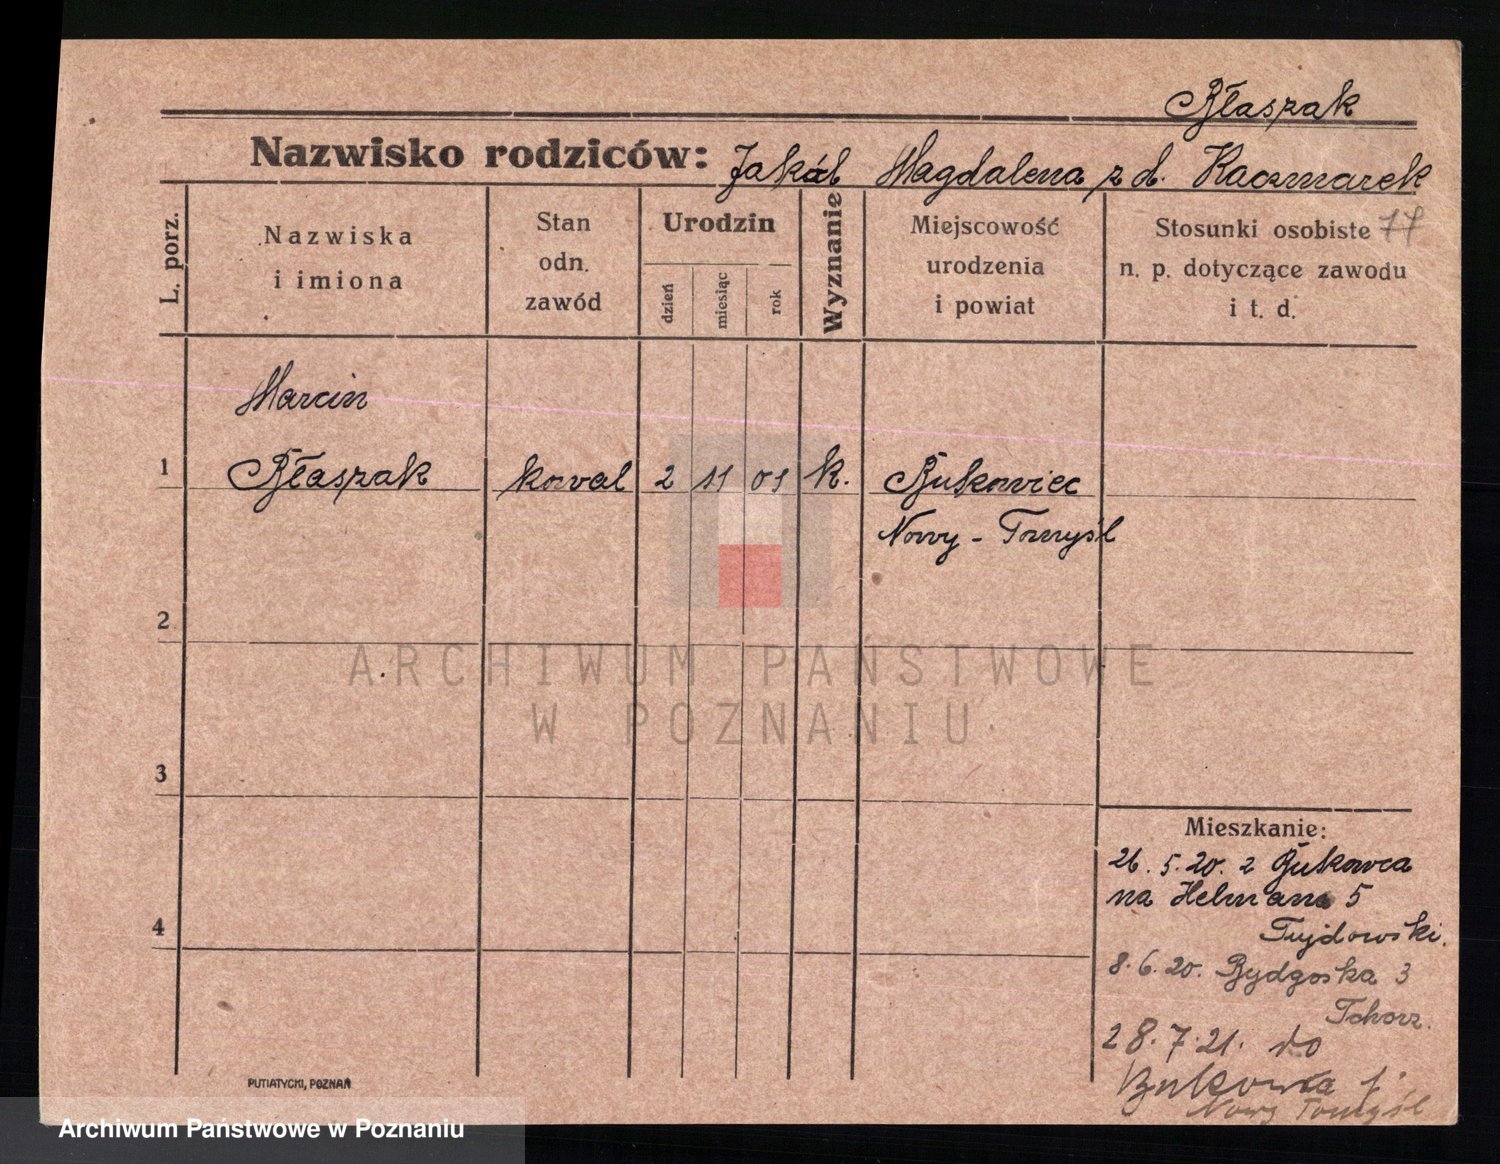 Błaszak
Nazwisko rodziców: Jakób Magdalena z d. Kaczmarek
L. porz.
Nazwiska
i imiona
Stan
odn.
zawód
Urodzin
dzień
miesiąc
rok
Wyznanie
Miejscowość
urodzenia
i powiat
Stosunki osobiste 77
n. p. dotyczące zawodu
i t. d.
Marcin
1 Błaszak kowal 2 11 01 k. Bukowiec
Nowy - Tomyśl
2
ARCHIWUM PAŃSTWOWE
W POZNANIU
3
Mieszkanie:
26. 5. 20. z Bukowca
na Helmana 5
4
Tujdowski.
8. 6. 20. Bydgoska 3
Tchorz.
28. 7. 21. do
Bukowca
Nowy Tomyśl
PUTIATYCKI, POZNAŃ
Archiwum Państwowe w Poznaniu